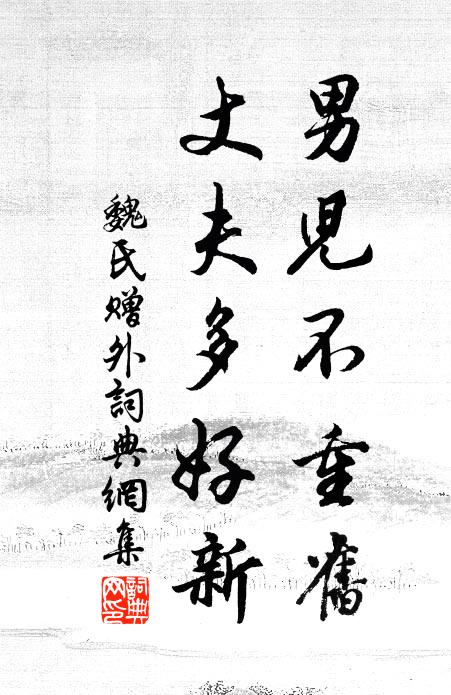 男兒不重舊
丈夫多好新
魏氏赠外詞典網集
詞典网印